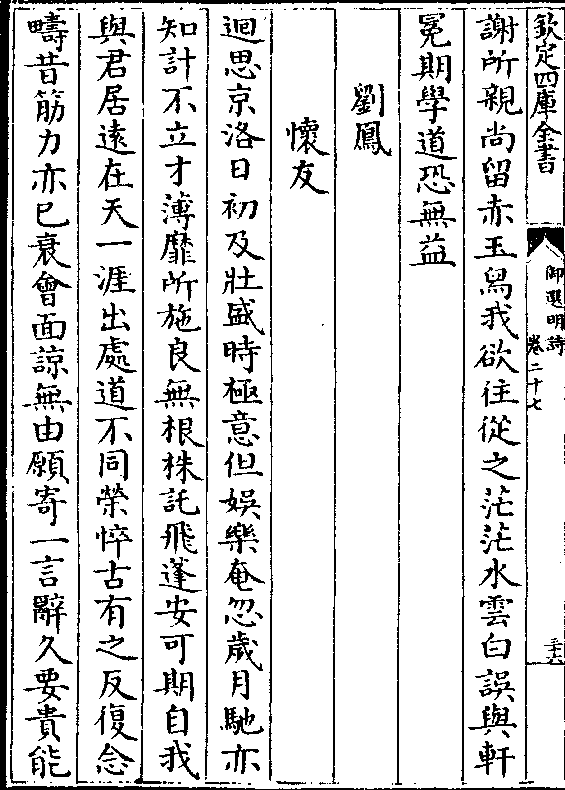 欽定四庫全書
御選明詩
卷二十七
三十六
謝所親尚留赤玉舄我欲往從之茫茫水雲白誤與軒
冕期學道恐無益
劉鳳
懷友
迴思京洛日初及壯盛時極意但娛樂奄忽歲月馳亦
知計不立才薄靡所施良無根株託飛蓬安可期自我
與君居遠在天一涯出處道不同榮悴古有之反復念
疇昔筋力亦已衰會面諒無由願寄一言辭久要貴能